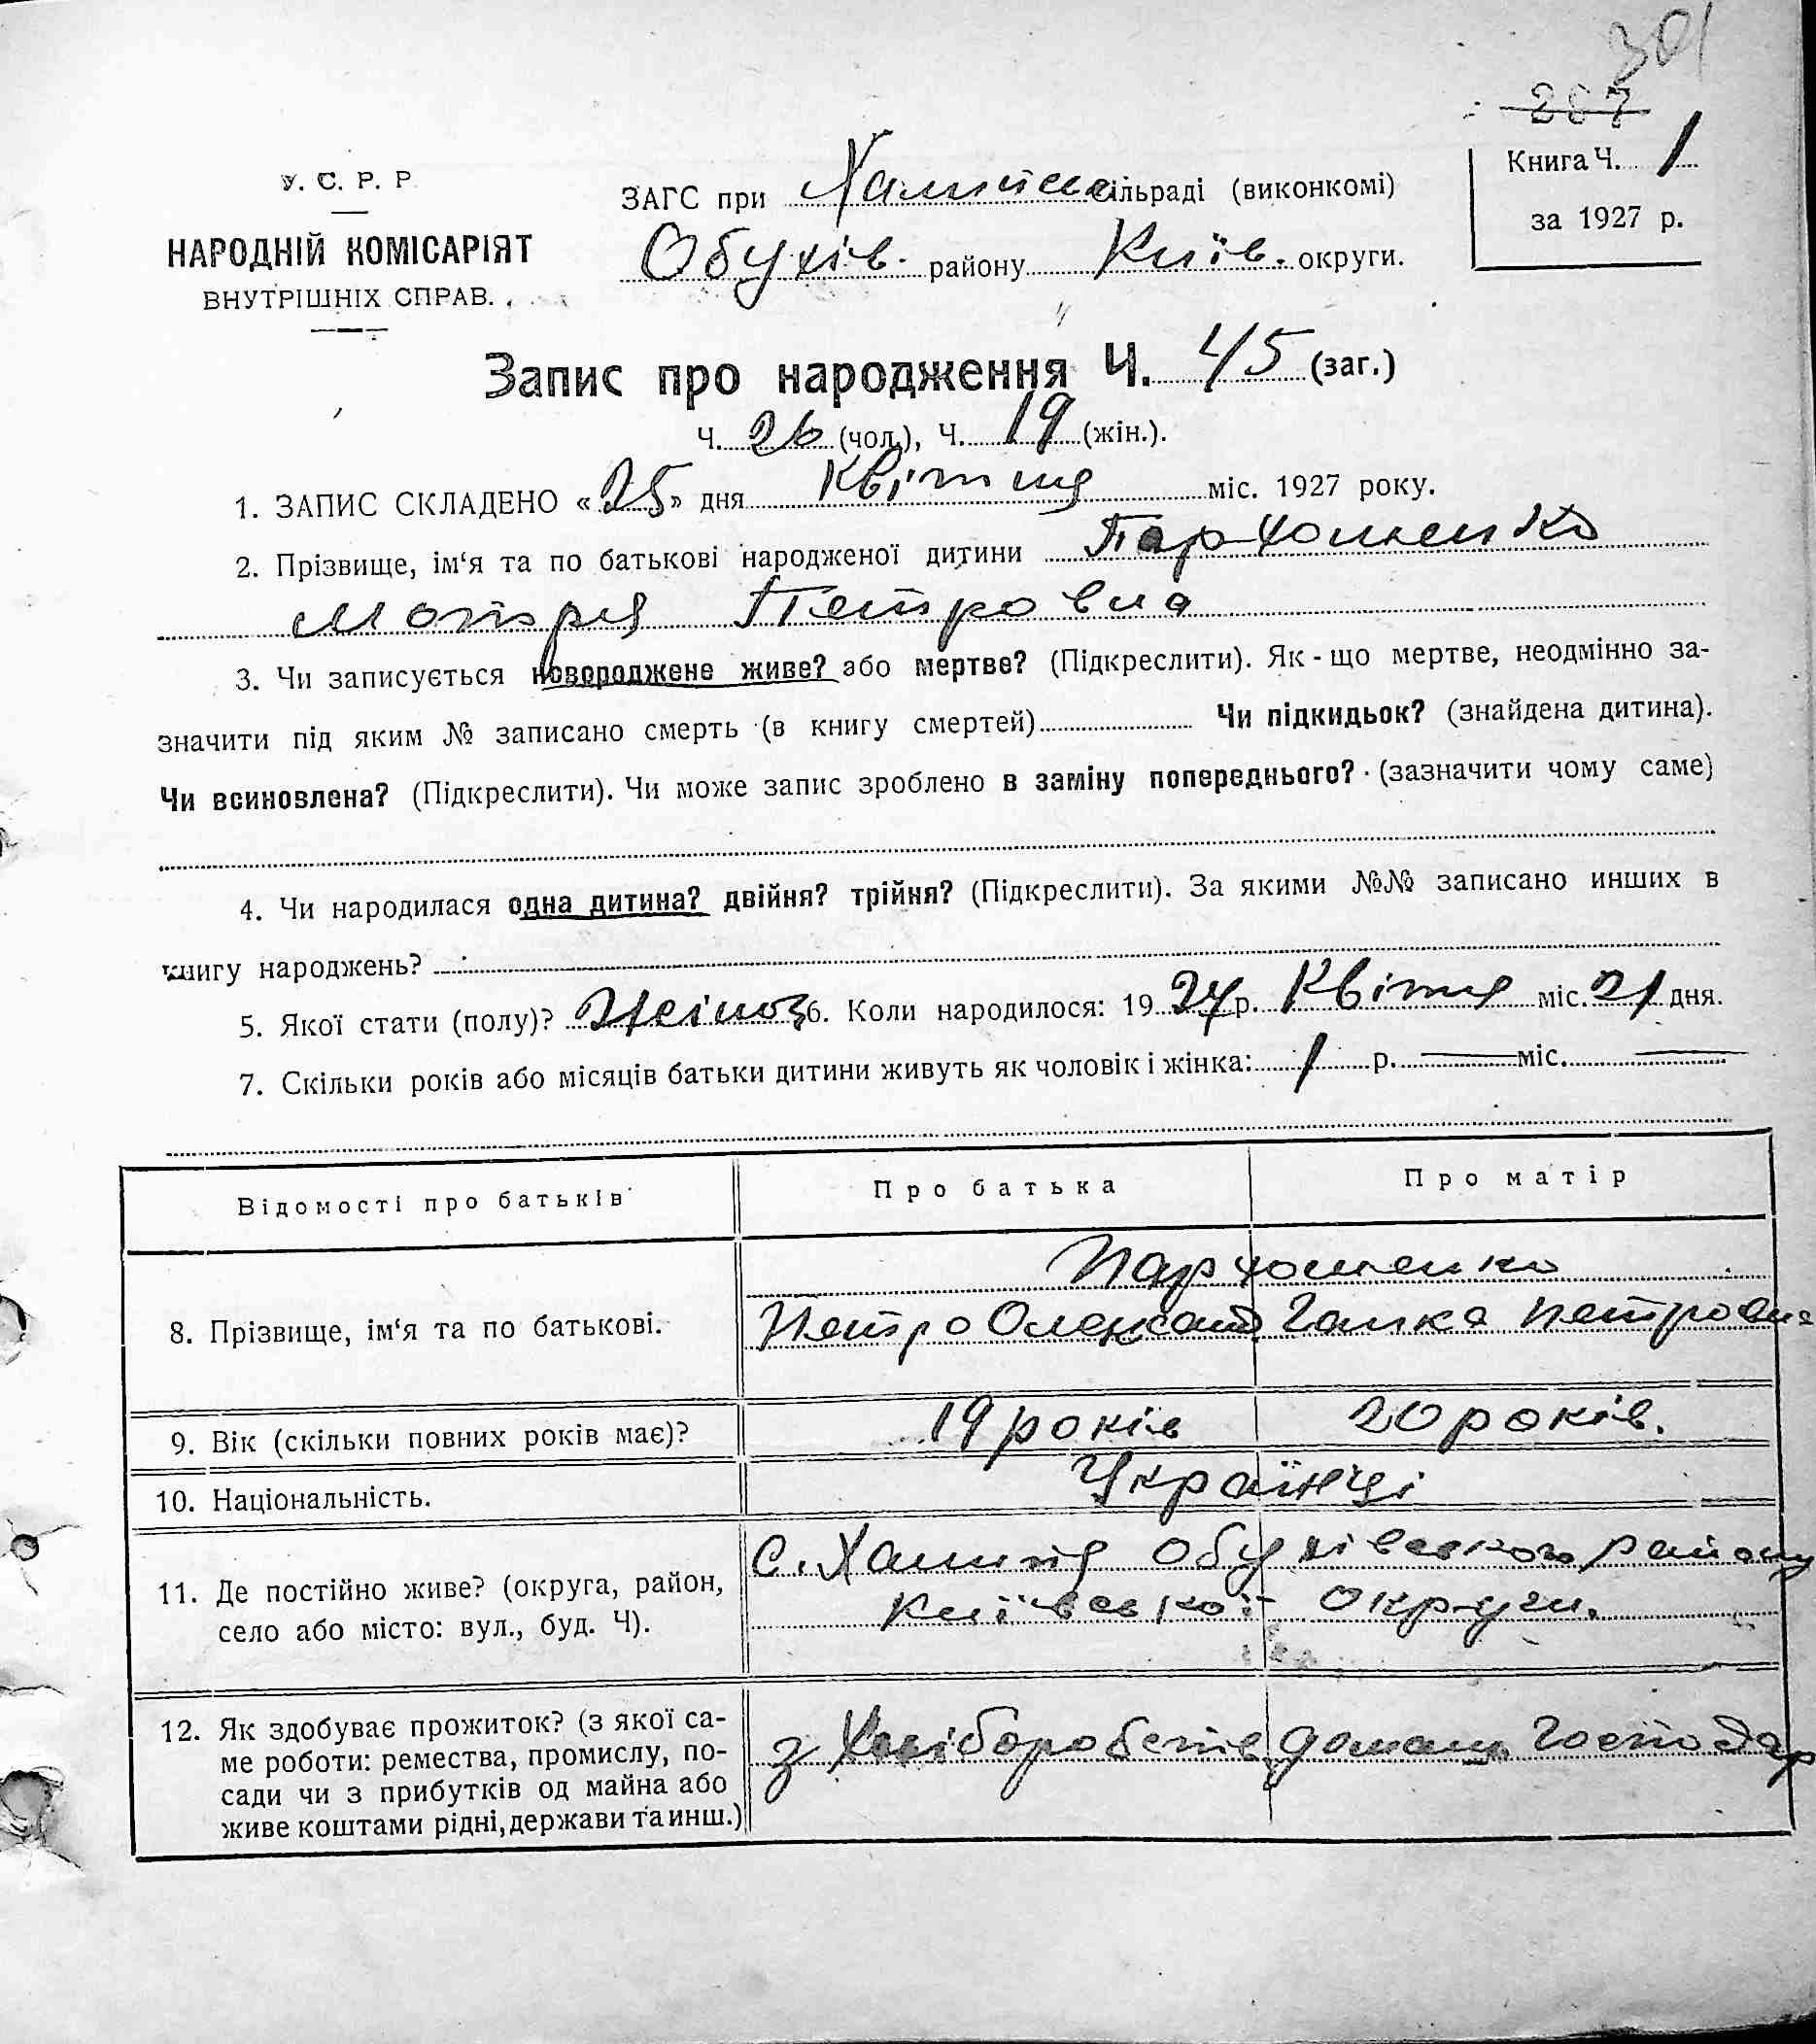 301
267
У. С. Р. Р.
НАРОДНІЙ КОМІСАРІЯТ
ВНУТРІШНІХ СПРАВ.
ЗАГС при Халипсь сільраді (виконкомі)
Обухів. району Київ. округи.
Книга Ч. 1
за 1927 р.
Запис про народження Ч. 45 (заг.)
Ч. 26 (чол.), Ч. 19 (жін.).
1. ЗАПИС СКЛАДЕНО «25» дня Квітня міс. 1927 року.
2. Прізвище, ім‘я та по батькові народженої дитини Пархоменко
Мотря Петровна
3. Чи записується новороджене живе? або мертве? (Підкреслити). Як-що мертве, неодмінно за-
значити під яким № записано смерть (в книгу смертей) Чи підкидьок? (знайдена дитина).
Чи всиновлена? (Підкреслити). Чи може запис зроблено в заміну попереднього? (зазначити чому саме)
4. Чи народилася одна дитина? двійня? трійня? (Підкреслити). За якими №№ записано инших в
книгу народжень?
5. Якої стати (полу)? Жіноч 6. Коли народилося: 1927 р. Квітня міс. 21 дня.
7. Скільки років або місяців батьки дитини живуть як чоловік і жінка: 1 р. — міс. —
Відомості про батьків
Про батька
Про матір
Пархоменко
8. Прізвище, ім‘я та по батькові.
Петро Олександ
Галька Петровна
9. Вік (скільки повних років має)?
19 років
20 років.
10. Національність.
Українці
11. Де постійно живе? (округа, район,
село або місто: вул., буд. Ч).
С. Халипя Обухівського району
Київської округи.
12. Як здобуває прожиток? (з якої са-
ме роботи: ремества, промислу, по-
сади чи з прибутків од майна або
живе коштами рідні, держави та инш.)
з Хліборобств домашн господар